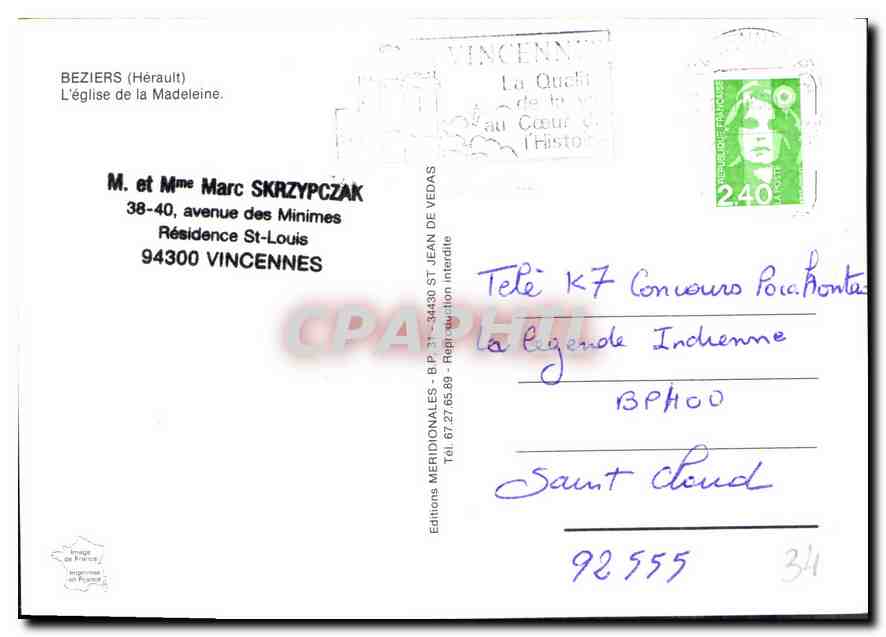 BEZIERS (Hérault)
L'église de la Madeleine.
VINCENN
La Quali
de la v
au Cœur d
l'Histoi
RÉPUBLIQUE FRANÇAISE
2,40
LA POSTE
M. et Mme Marc SKRZYPCZAK
38-40, avenue des Minimes
Résidence St-Louis
94300 VINCENNES
Editions MERIDIONALES - B.P. 31 - 34430 ST JEAN DE VEDAS
Tél. 67.27.65.89 - Reproduction interdite
CPAPHIL
Télé K7 Concours Pocahontas
La légende Indienne
BP400
Saint Cloud
92555
34
Image
de France
Imprimée
en France